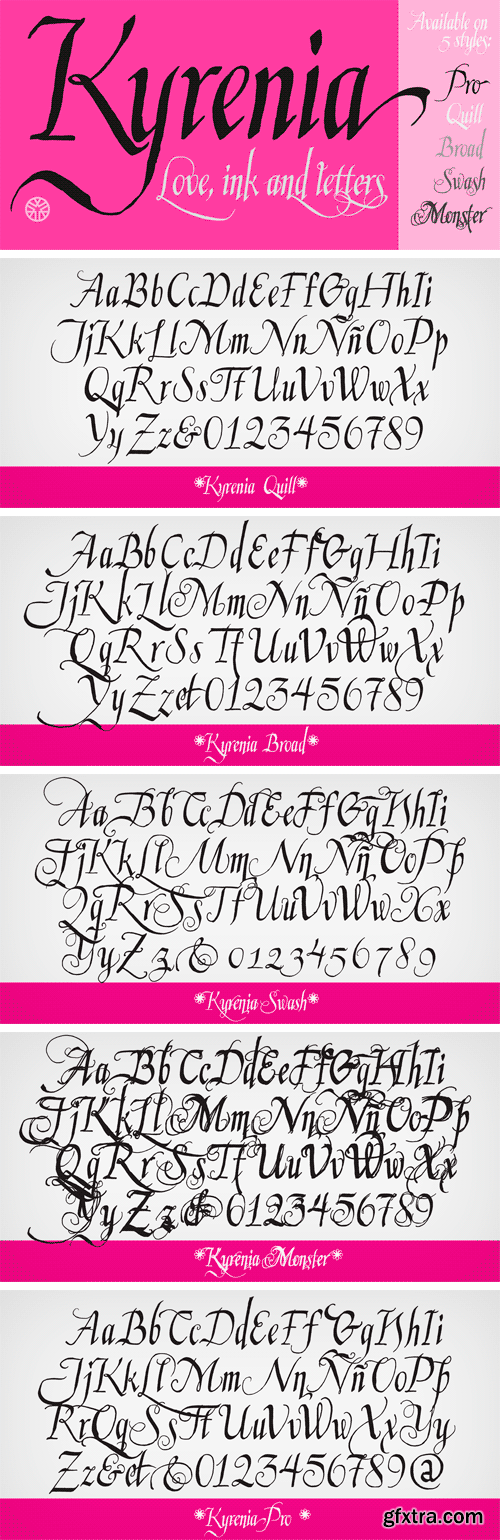 Kyrenia
Love, ink and letters
Available on
5 styles:
Pro
Quill
Broad
Swash
Monster
AaBbCcDdEeFfGgHhIi
JjKkLlMmNnÑñOoPp
QqRrSsTtUuVvWwXx
YyZz&0123456789
*Kyrenia Quill*
AaBbCcDdEeFfGgHhIi
JjKkLlMmNnÑñOoPp
QqRrSsTtUuVvWwXx
YyZz&0123456789
*Kyrenia Broad*
AaBbCcDdEeFfGgHhIi
JjKkLlMmNnÑñOoPp
QqRrSsTtUuVvWwXx
YyZz& 0123456789
*Kyrenia Swash*
AaBbCcDdEeFfGgHhIi
JjKkLlMmNnÑñOoPp
QqRrSsTtUuVvWwXx
YyZz& 0123456789
*Kyrenia Monster*
AaBbCcDdEeFfGgHhIi
JjKkLlMmNnÑñOoPp
RrQqSsTtUuVvWwXxYy
Zz&&0123456789@
*Kyrenia Pro *
gfxtra.com